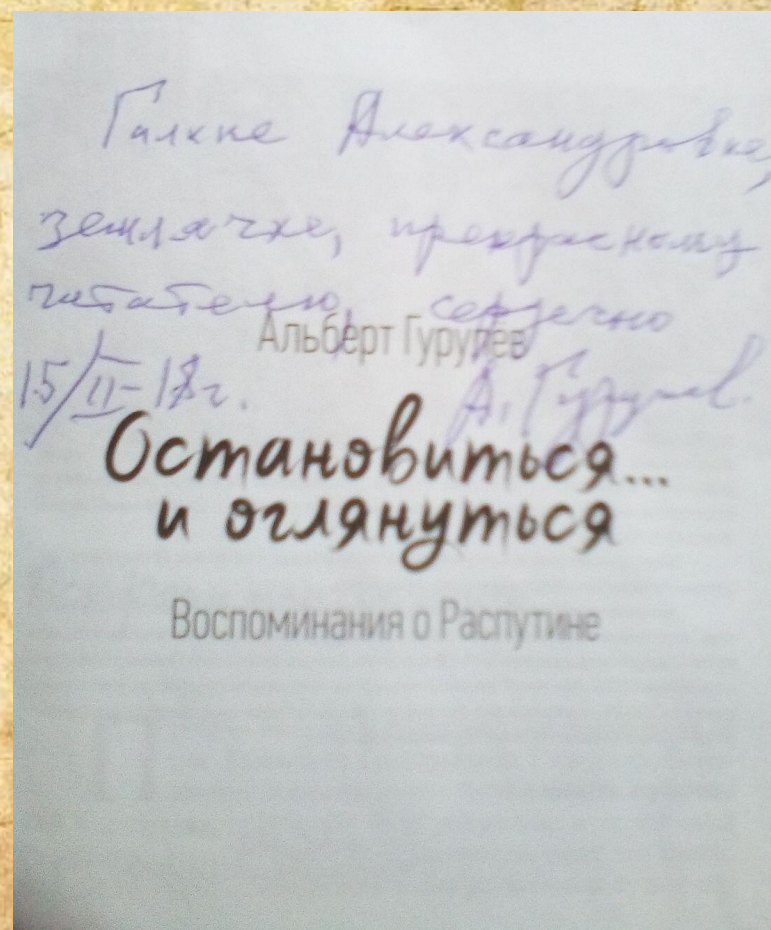 Галине Александровне,
землячке, прекрасному
читателю, сердечно
Альберт Гурулев
15/II-18г. А. Гурулев.
Остановиться...
и оглянуться
Воспоминания о Распутине